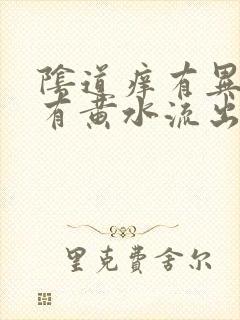 陰道痒有異
有黄水流出
里克費舍尔